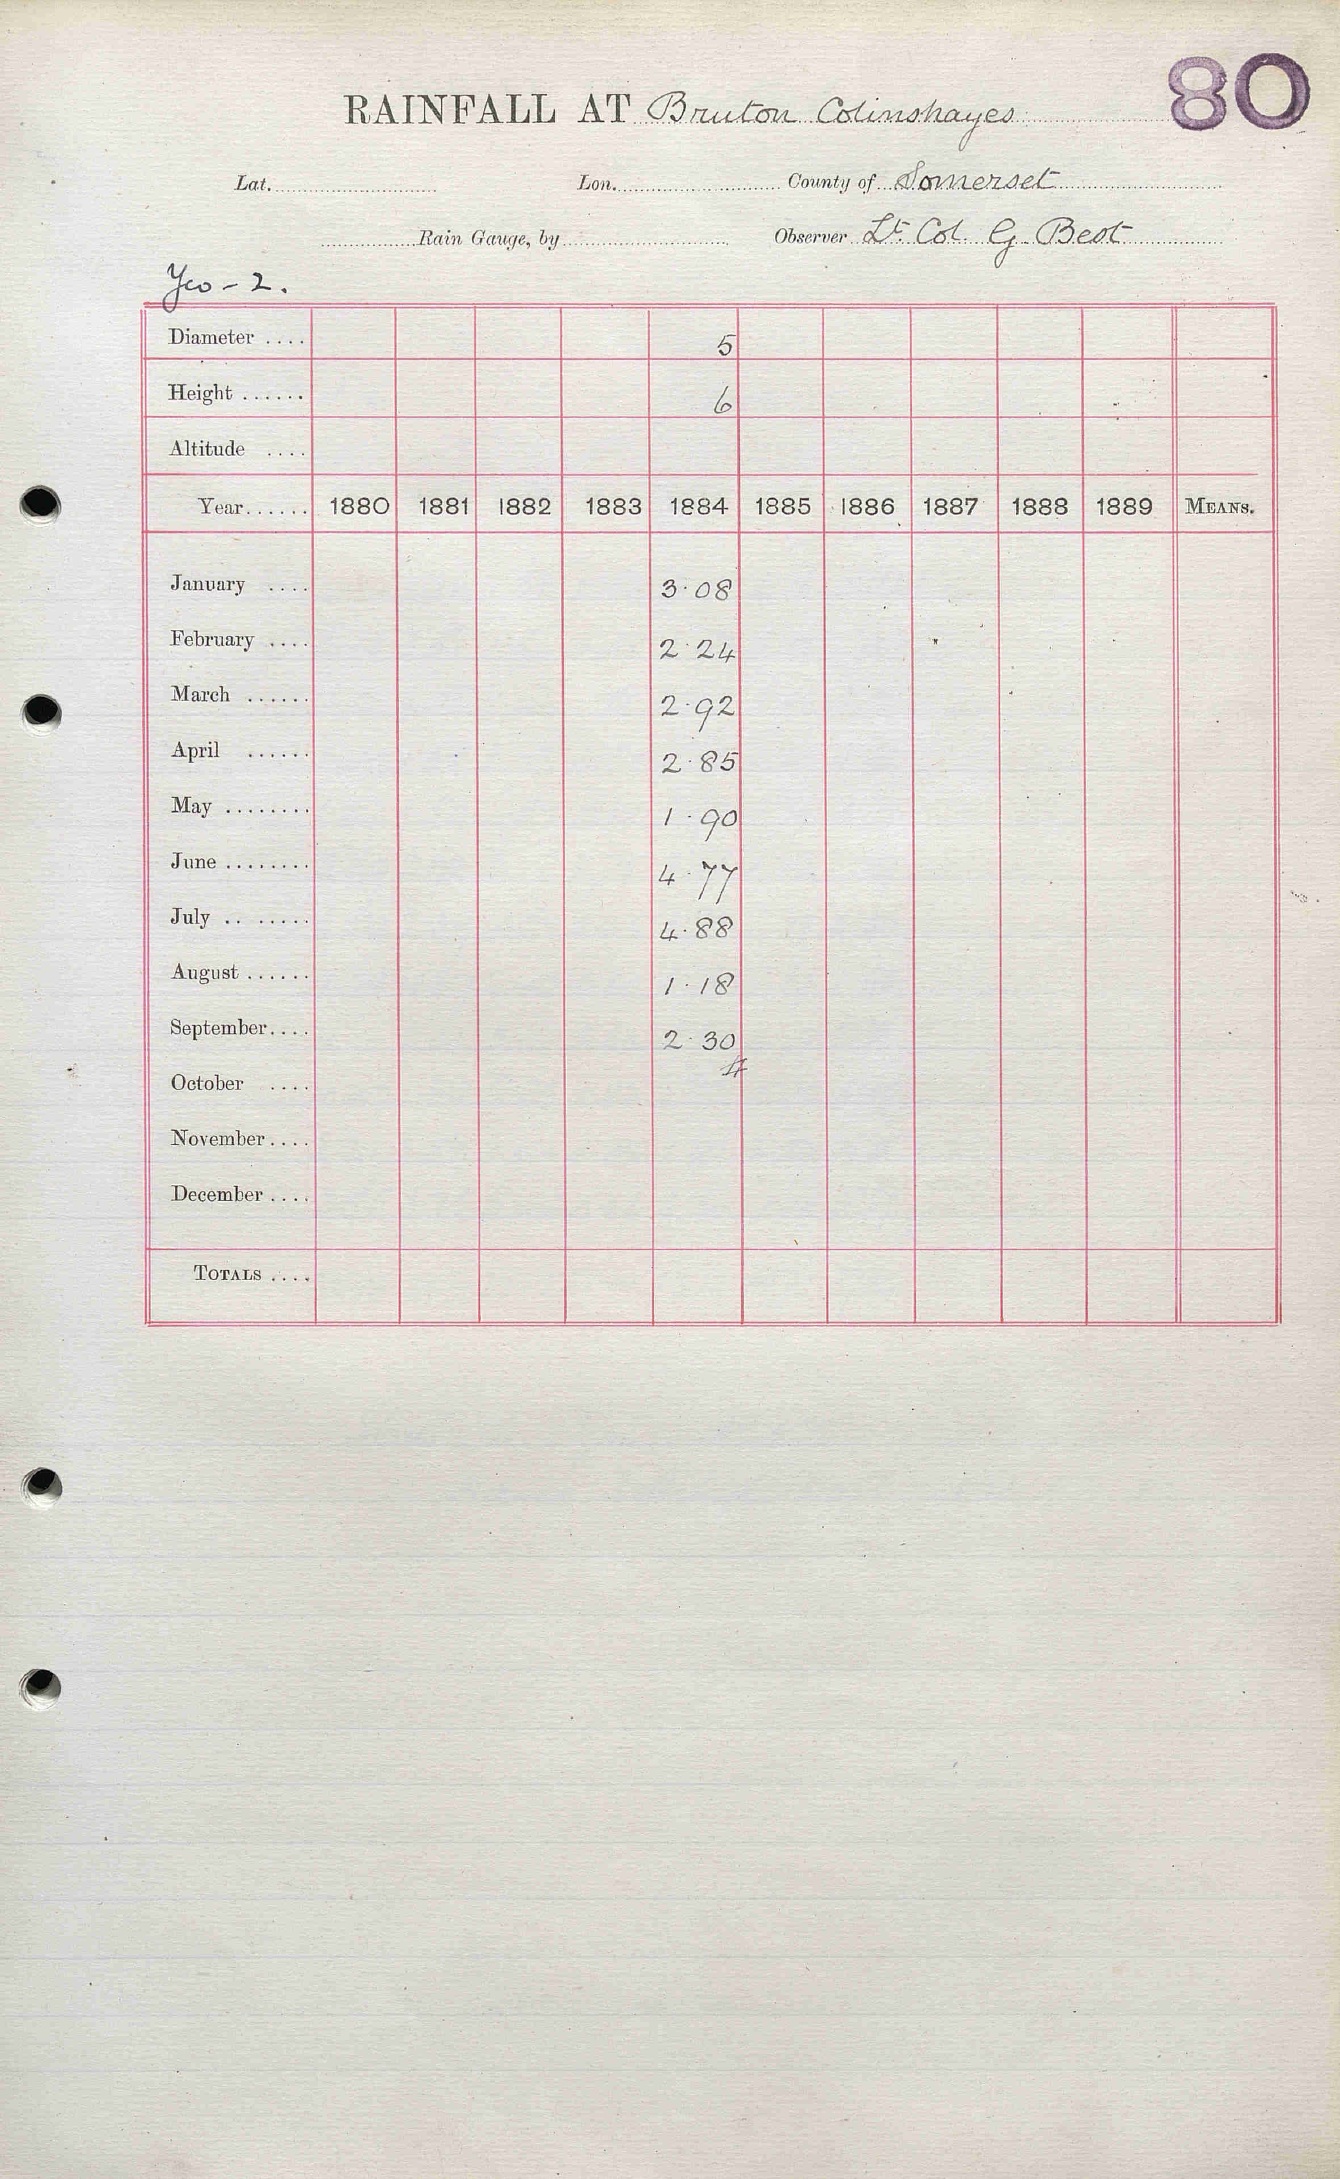 80
RAINFALL AT Bruton Colinshayes
Lat. Lon. County of Somerset
Rain Gauge, by Observer Lt. Col. G. Best
Yeo - 2.
Diameter .... 5
Height ...... 6
Altitude ....
Year...... 1880 1881 1882 1883 1884 1885 1886 1887 1888 1889 MEANS.
January .... 3.08
February .... 2.24
March ...... 2.92
April ...... 2.85
May ........ 1.90
June ........ 4.77
July .. ..... 4.88
August ...... 1.18
September.... 2.30
October ....
November....
December ....
TOTALS ....